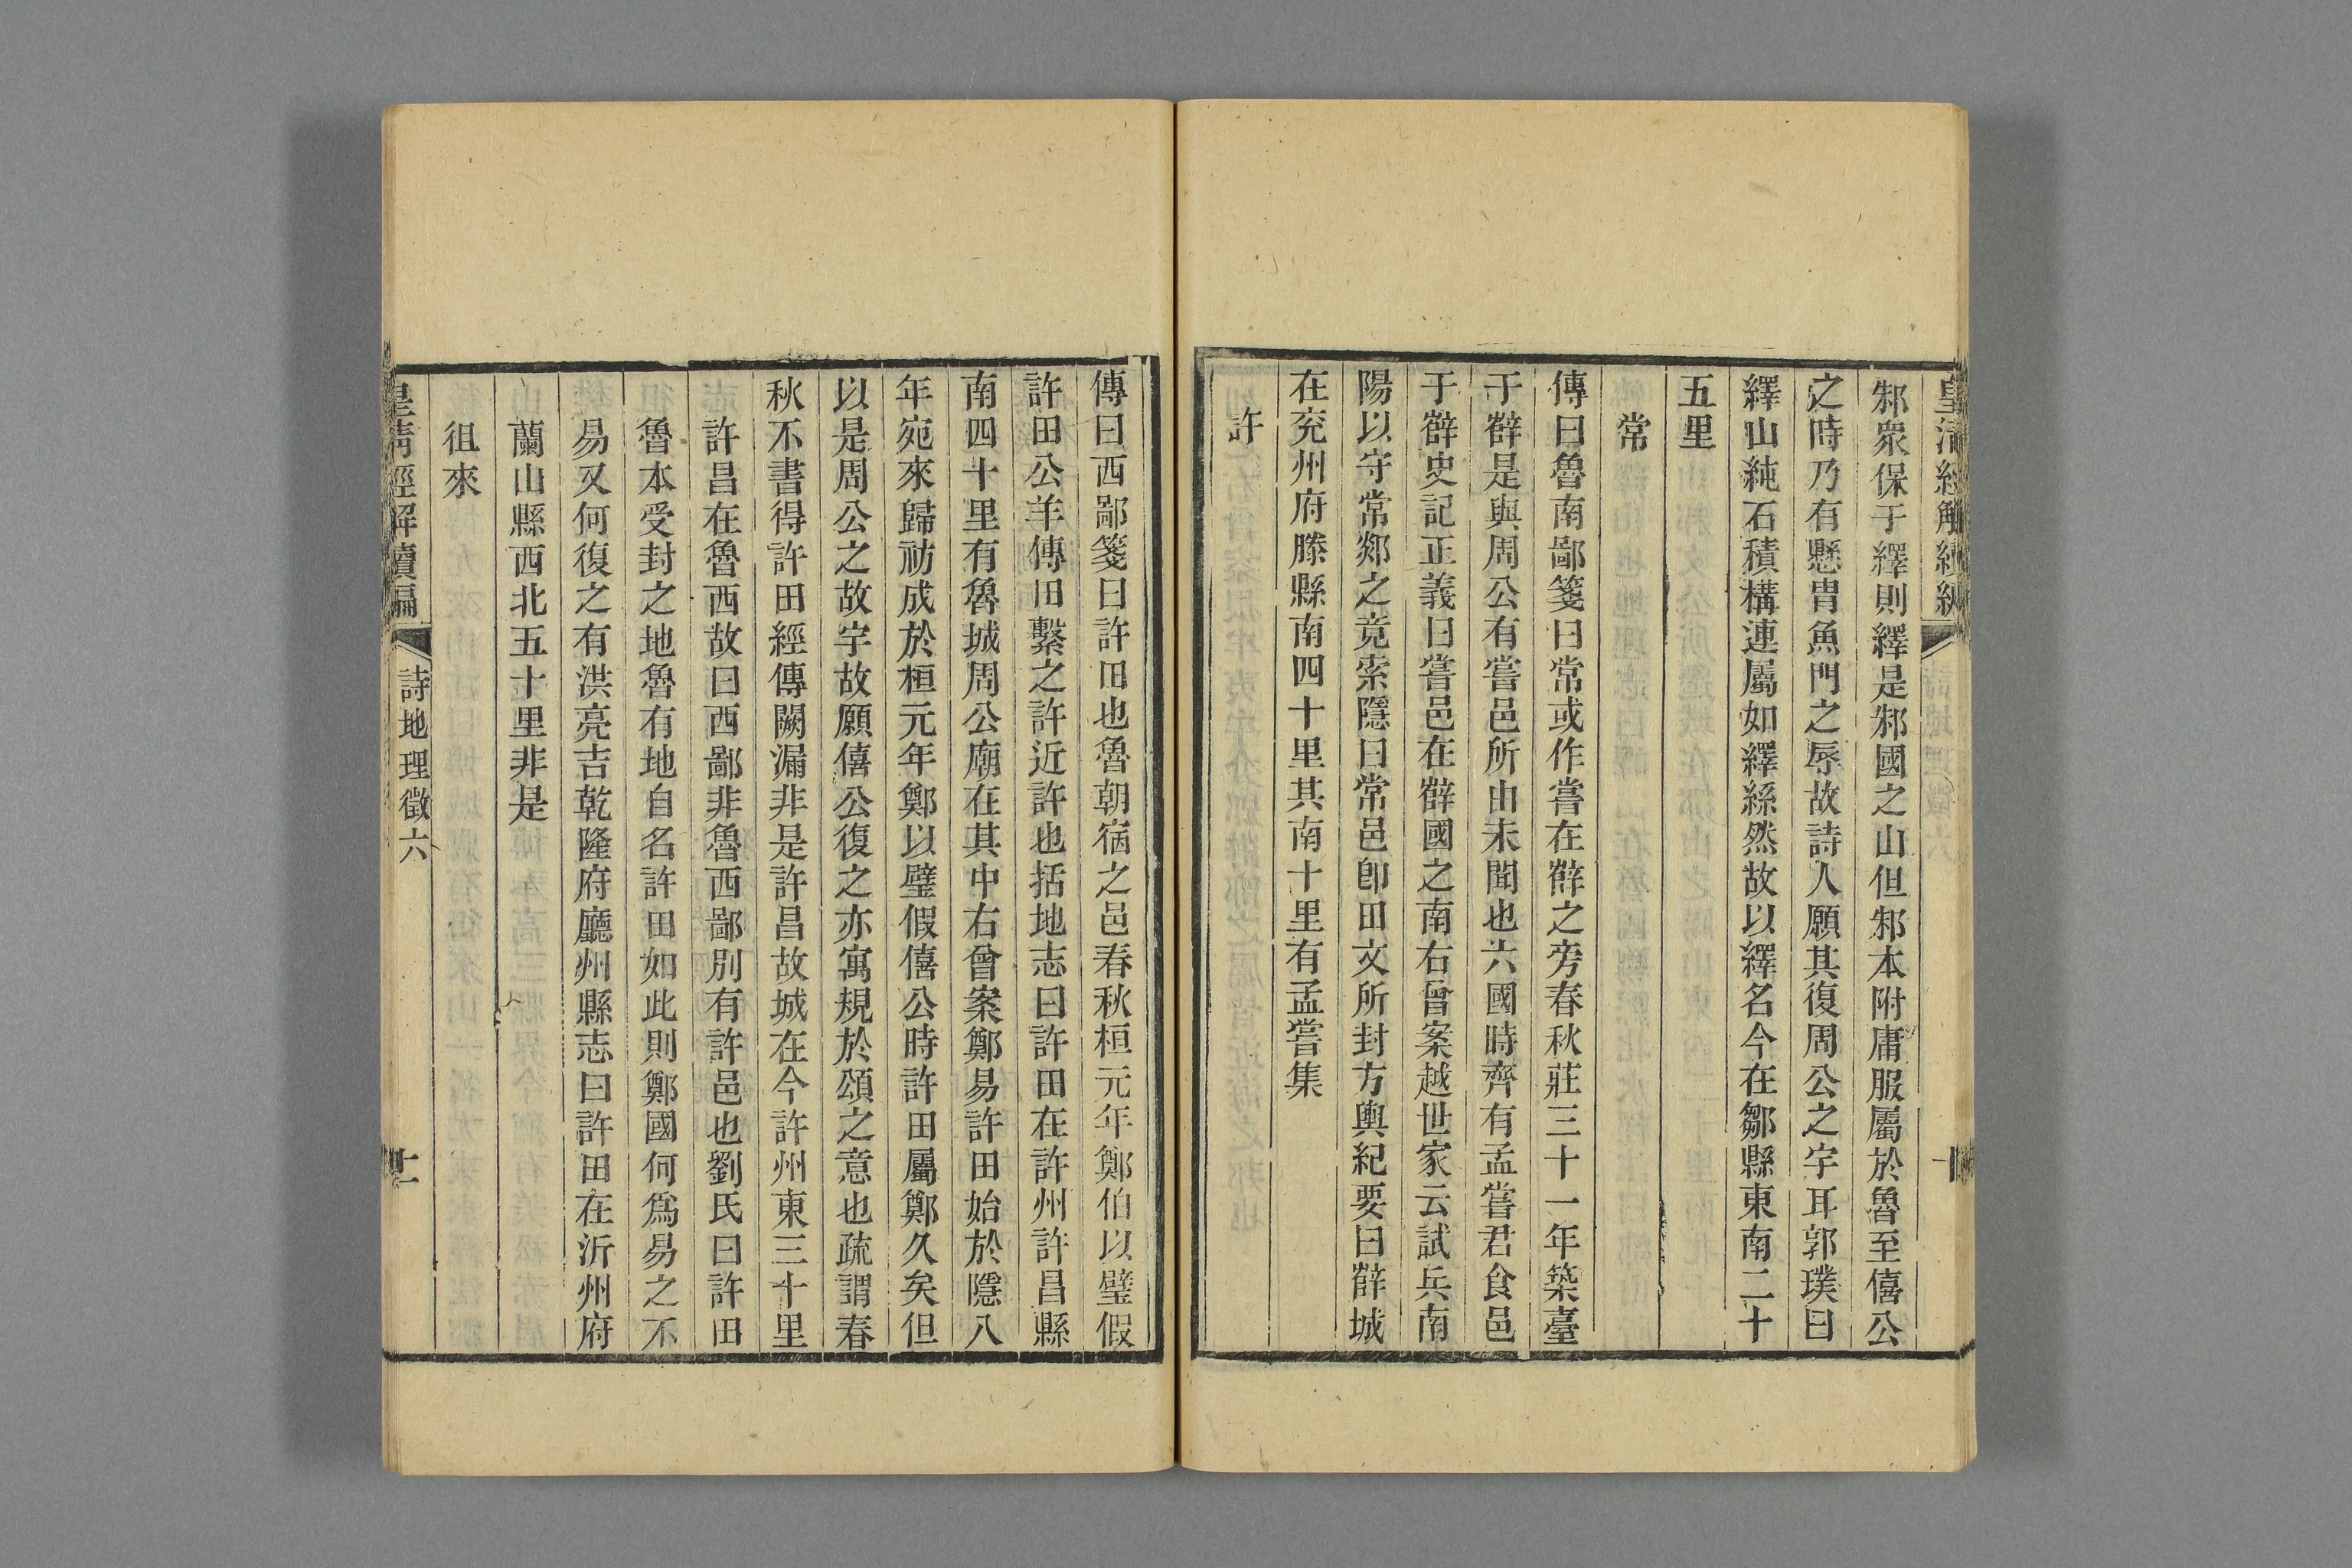 皇清經解續編
邾衆保于繹則繹是邾國之山但邾本附庸服屬於魯至僖公
之時乃有懸冑魚門之辱故詩人願其復周公之宇耳郭璞曰
繹山純石積構連屬如繹絲然故以繹名今在鄒縣東南二十
五里
常
傳曰魯南鄙箋曰常或作嘗在薛之旁春秋莊三十一年築臺
于薛是與周公有嘗邑所由未聞也六國時齊有孟嘗君食邑
于薛史記正義曰嘗邑在薛國之南右曾案越世家云試兵南
陽以守常郯之竟索隱曰常邑卽田文所封方輿紀要曰薛城
在兖州府滕縣南四十里其南十里有孟嘗集
許
傳曰西鄙箋曰許田也魯朝宿之邑春秋桓元年鄭伯以璧假
許田公羊傳田繫之許近許也括地志曰許田在許州許昌縣
南四十里有魯城周公廟在其中右曾案鄭易許田始於隱八
年宛來歸祊成於桓元年鄭以璧假僖公時許田屬鄭久矣但
以是周公之故宇故願僖公復之亦寓規於頌之意也疏謂春
秋不書得許田經傳闕漏非是許昌故城在今許州東三十里
許昌在魯西故曰西鄙非魯西鄙別有許邑也劉氏曰許田
魯本受封之地魯有地自名許田如此則鄭國何爲易之不
易又何復之有洪亮吉乾隆府廳州縣志曰許田在沂州府
蘭山縣西北五十里非是
徂來
皇清經解續編
詩地理徵六
十一